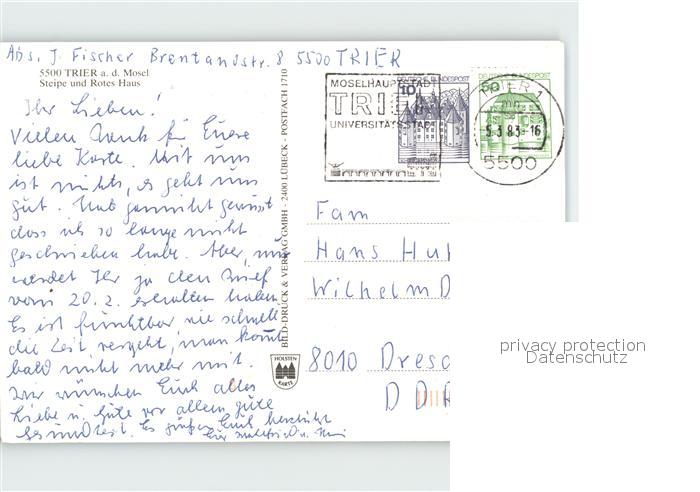 Abs. J. Fischer Brentanostr. 8 5500 TRIER
5500 TRIER a. d. Mosel
Steipe und Rotes Haus
Ihr Lieben!
Vielen Dank für Euere
liebe Karte. Mit uns
ist nichts, es geht uns
gut. Hab garnicht gewusst
dass ich so lange nicht
geschrieben habe. Aber, nun
werdet Ihr ja den Brief
vom 20.2. erhalten haben.
Es ist furchtbar wie schnell
die Zeit vergeht, man kommt
bald nicht mehr mit.
Wir wünschen Euch alles
Liebe u. Gute vor allem gute
Gesundheit. Es grüßen Euch herzlichst
BILD-DRUCK & VERLAG GMBH - 2400 LÜBECK - POSTFACH 1710
HOLSTEN
KARTE
MOSELHAUPTSTADT
TRIER
UNIVERSITÄTSSTADT
10
DEUTSCHE BUNDESPOST
50
DEUTSCHE BUNDESPOST
TRIER 1
5.3.83-16
5500
Fam
Hans Hu
Wilhelm
8010 Dresd
DD
privacy protection
Datenschutz